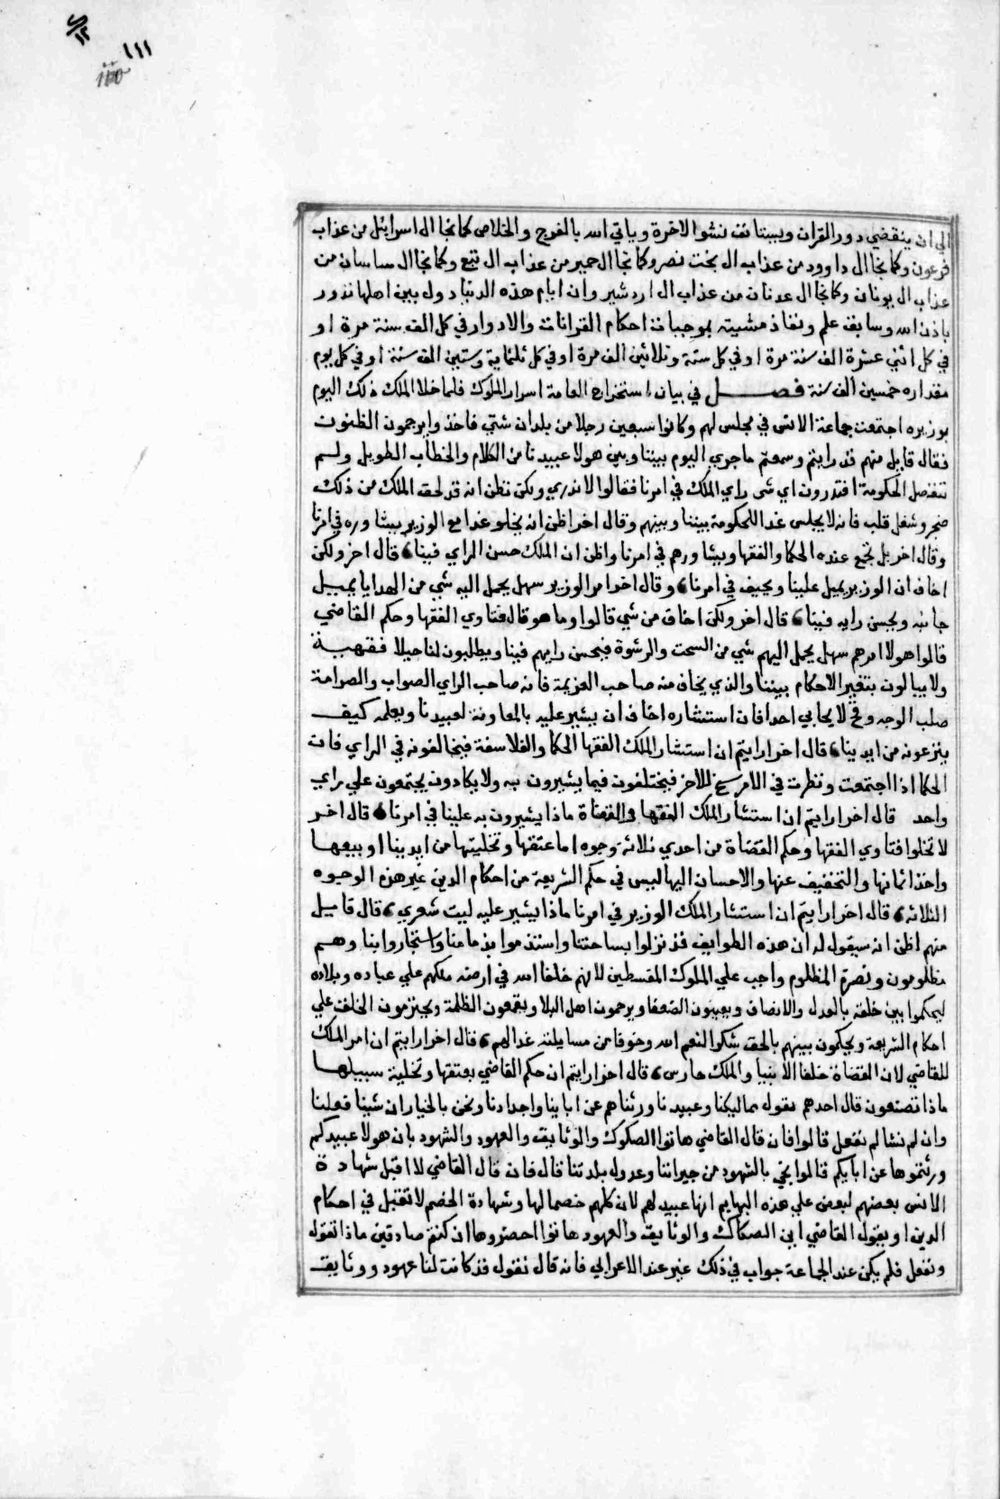 ١١١
الي ان ينقضي دور القران ويستانف نشو الاخرة وياتي الله بالفرج والخلاص كما نجا ال اسرايل من عذاب
فرعون وكما نجا ال داوود من عذاب ال بخت نصر وكما نجا ال حمير من عذاب ال تبع وكما نجا ال ساسان من
عذاب ال يونان وكما نجا ال عدنان من عذاب ال اردشير وان ايام هذه الدنيا دول بين اهلها تدور
باذن الله وسابق علمه ونفاذ مشيته بموجبات احكام القرانات والادوار في كل الف سنة مرة او
في كل اثني عشرة الف سنة مرة او في كل ستة وثلاثين الف مرة او في كل ثلثماية وستين الف سنة او في كل يوم
مقداره خمسين الف سنة فصل في بيان استخراج العامة اسرار الملوك فلما خلا الملك ذلك اليوم
بوزيره اجتمعت جماعة الانس في مجلس لهم وكانوا سبعين رجلا من بلدان شتي فاخذوا يرجمون الظنون
فقال قايل منهم قد رايتم وسمعتم ما جري اليوم بيننا وبين هولا عبيدنا من الكلام والخطاب الطويل ولم
تنفصل الحكومة افتدرون اي شي راي الملك في امرنا فقالوا لا ندري ولكن نظن انه قد لحق الملك من ذلك
ضجر وشغل قلب فانه لا يجلس غدا للحكومة بيننا وبينهم وقال اخر اظن انه يخلو غدا مع الوزير يشاوره في امرنا
وقال اخر بل يجمع عنده الحكما والفقها ويشاورهم في امرنا واظن ان الملك حسن الراي فينا قال اخر ولكن
اخاف ان الوزير يميل علينا ويحيف في امرنا وقال اخر امر الوزير سهل يحمل اليه شي من الهدايا يميل
جانبه ويحسن رايه فينا قال اخر ولكن اخاف من شي قالوا وما هو قال فتاوي الفقها وحكم القاضي
قالوا هولا امرهم سهل يحمل اليهم شي من السحت والرشوة فيحسن رايهم فينا ويطلبون لنا حيلا فقهية
ولا يبالون بتغيير الاحكام بيننا والذي يخاف منه صاحب العزيمة فانه صاحب الراي الصواب والصرامة
صلب الوجه وقح لا يحابي احدا فان استشاره اخاف ان يشير عليه بالمعاونة لعبيدنا ويعلمه كيف
ينزعونه من ايدينا قال اخر ارايتم ان استشار الملك الفقها الحكما والفلاسفة فيخالفونه في الراي فان
الحكما اذا اجتمعت ونظرت في الامر سنح للاخر فيختلفون فيما يشيرون به ولا يكادون يجتمعون علي راي
واحد قال اخر ارايتم ان استشار الملك الفقها والقضاة ماذا يشيرون به علينا في امرنا قال اخر
لا تخلوا فتاوي الفقها وحكم القضاة من احدي ثلاثة وجوه اما عتقها وتخليتها من ايدينا او بيعها
واخذ اثمانها والتخفيف عنها والاحسان اليها ليس في حكم الشريعة من احكام الدين غير هذه الوجوه
الثلاثة قال اخر ارايتم ان استشار الملك الوزير في امرنا ماذا يشير عليه ليت شعري قال قايل
منهم اظن انه سيقول له ان هذه الطوايف قد نزلوا بساحتنا واستذموا بذمامنا واستجاروا بنا وهم
مظلومون ونصرة المظلوم واجب علي الملوك المقسطين لانهم خلفا الله في ارضه ملكهم علي عباده وبلاده
ليحكموا بين خلقه بالعدل والانصاف ويعينون الضعفا ويرحمون اهل البلا ويقمعون الظلمة ويجبرون الخلق علي
احكام الشريعة ويحكمون بينهم بالحق شكرا لنعم الله وخوفا من مسايلته غدا لهم قال اخر ارايتم ان امر الملك
للقاضي لان القضاة خلفا الانبيا والملك حارس قال اخر ارايتم ان حكم القاضي بعتقها وتخلية سبيلها
ماذا تصنعون قال احدهم نقول مماليكنا وعبيدنا ورثناهم عن ابايينا واجدادنا ونحن بالخيار ان شينا فعلنا
وان لم نشا لم نفعل قالوا فان قال القاضي هاتوا الصكوك والوثايق والعهود والشهود بان هولا عبيدكم
ورثتموها عن ابايكم قالوا نجي بالشهود من جيراننا وعدول بلدتنا قال فان قال القاضي لا اقبل شهادة
الانس بعضهم لبعض علي هذه البهايم انها عبيد لهم لان كلهم خصما لها وشهادة الخصم لا تقبل في احكام
الدين او يقول القاضي اين الصكاك والوثايق والعهود هاتوا احضروها ان كنتم صادقين ماذا نقول
ونفعل فلم يكن عند الجماعة جواب في ذلك غير عند الاعرابي فانه قال نقول قد كانت لنا عهود ووثايق